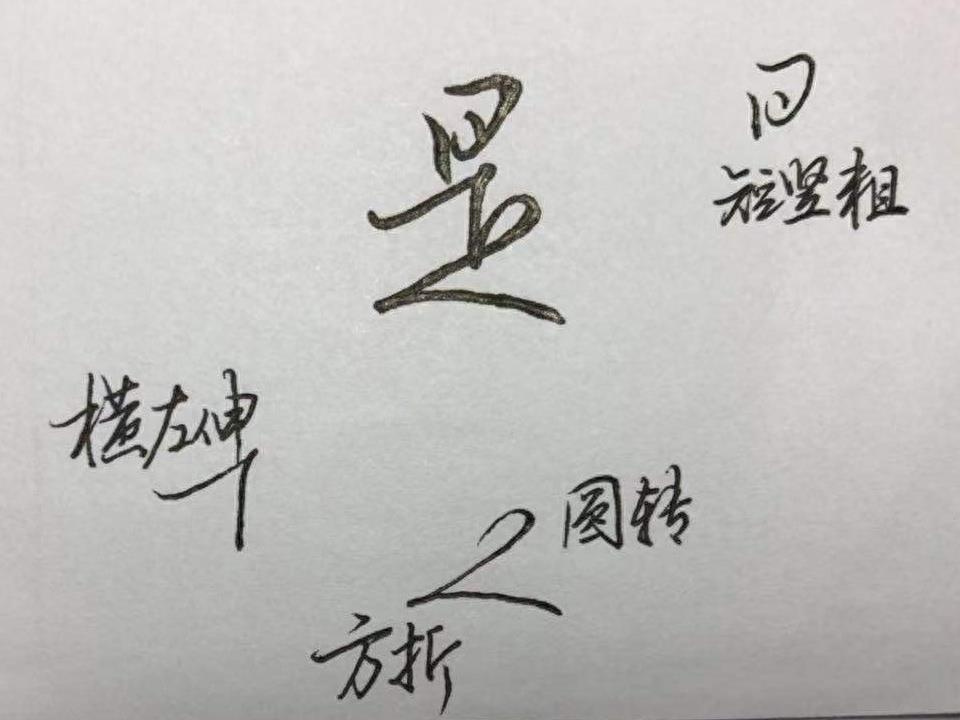 是
短竖粗
横左伸
圆转
方折